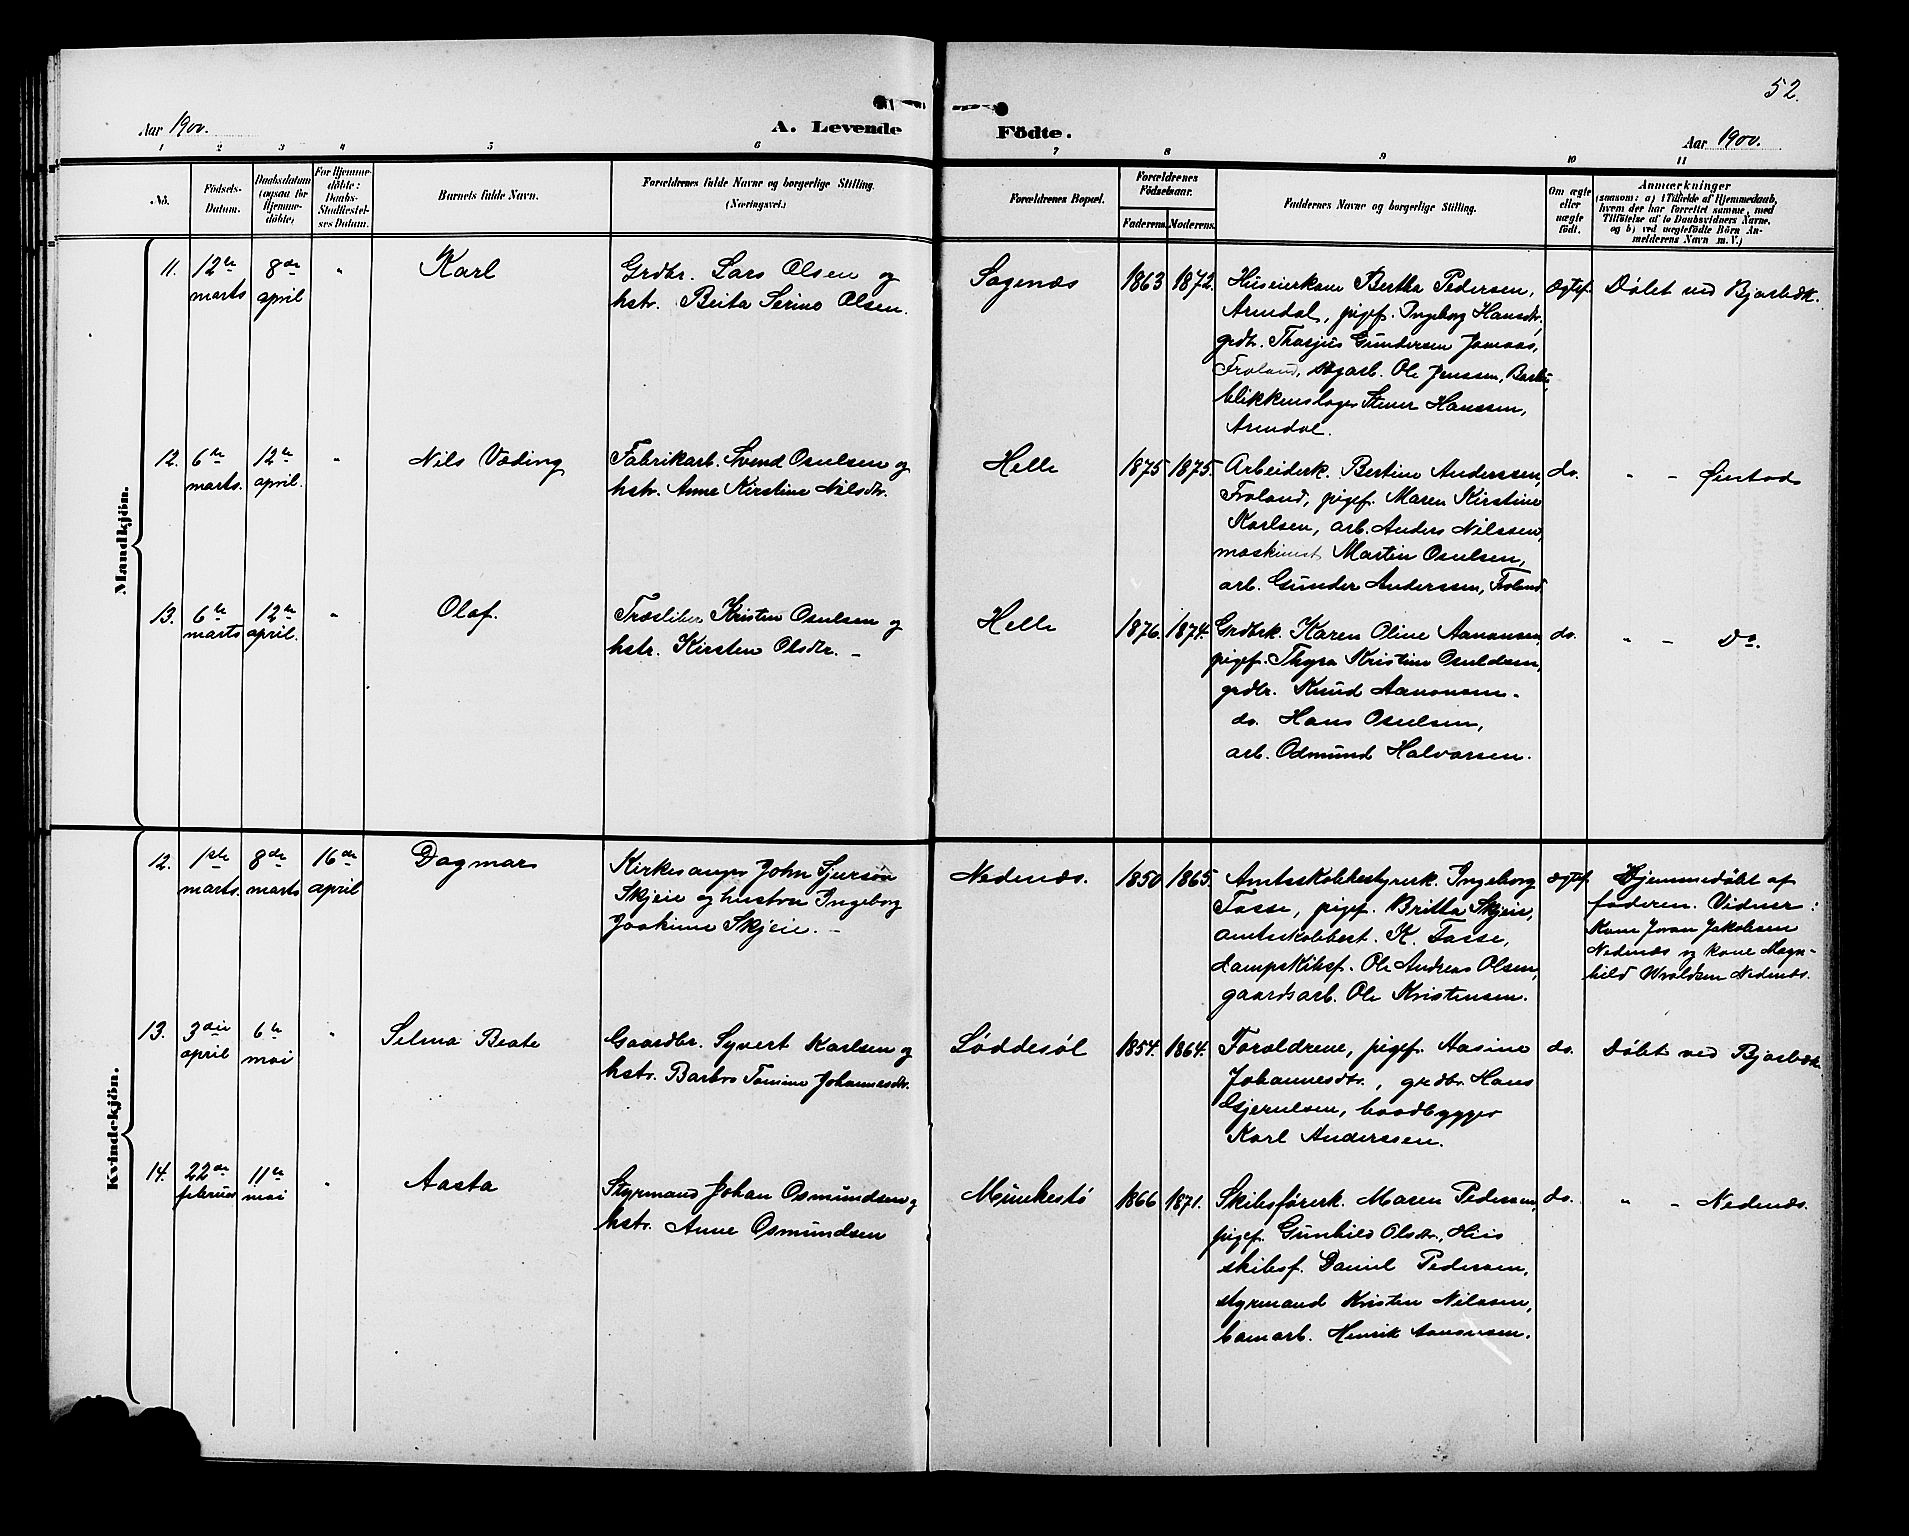 52.
Aar 1900.
A. Levende Födte.
Aar 1900.
1 2 3 4 5 6 7 8 9 10 11
No.
Födsels-
Datum.
Daabsdatum
(ogsaa for
Hjemme-
döbte)
For Hjemme-
döbte:
Daabs-
Stadfæstel-
ses Datum.
Barnets fulde Navn.
Forældrenes fulde Navne og borgerlige Stilling.
(Næringsvei.)
Forældrenes Bopæl.
Forældrenes
Födselsaar.
Faderens. Moderens.
Faddernes Navne og borgerlige Stilling.
Om ægte
eller
uægte
født.
Anmærkninger
(saasom: a) i Tilfælde af Hjemmedaab,
hvem der har forrettet samme, med
Tilföielse af to Daabsvidners Navne,
og b) ved uægtefödte Börn An-
melderens Navn m. V.)
Mandkjön.
11.
12te
marts
8de
april
"
Karl
Grdbr. Lars Olsen og
hstr. Berta Serine Olsen.
Sagenæs
1863
1872.
Huseierkone Bertha Pedersen,
Arendal, pigef. Ingeborg Hansdtr,
grdbr. Thorjus Gundersen Jomaas,
Froland, sagarb. Ole Jenssen, Barbu,
blikkenslager Stener Hanssen,
Arendal.
ægtef.
Døbt ved Bjorbæk.
12.
6te
marts.
12te
april.
"
Nils Væding
Fabrikarb. Svend Osulsen og
hstr. Anne Kirstine Nilsdtr.
Helle
1875
1875.
Arbeiderk. Bertine Anderssen,
Froland, pigef. Maren Kirstine
Karlsen, arb. Anders Nilssen,
maskinist Martin Osulsen,
arb. Gunder Anderssen, Froland
do.
" - Øiestad
13.
6te
marts
12te
april.
"
Olaf.
Træsliber Kristen Osulsen og
hstr. Kirsten Olsdtr. -
Helle
1876.
1874.
Grdbrk. Karen Oline Aanonsen,
pigef. Thyra Kristine Osuldsen,
grdbr. Knud Aanonsen -
do. Hans Osulsen,
arb. Odmund Halvorsen.
do.
" - Do.
Kvindekjön.
12.
1ste
marts.
8de
marts
16de
april
Dagmar
Kirkesanger John Sjursøn
Skjeie og hustru Ingeborg
Joakime Skjeie. -
Nedenæs.
1850
1865.
Amtsskolebestyrerk. Ingeborg
Fosse, pigef. Britta Skjeie,
amtsskolebest. K. Fosse,
dampskibsf. Ole Andreas Olsen,
gaardsarb. Ole Kristensen.
ægtef.
Hjemmedøbt af
faderen. Vidner:
Kone Joran Jakobsen
Nedenæs og kone Magn-
hild Evaldsen Nedenæs.
13.
3die
april
6te
mai
"
Selma Beate
Gaardbr. Syvert Karlsen og
hstr. Barbro Tomine Johannesdtr.
Løddesøl
1854.
1864.
Forældrene, pigef. Aasine
Johannesdtr., grdbr. Hans
Gjerulsen, baadbygger
Karl Anderssen.
do.
Døbt ved Bjorbæk.
14.
22de
februar
11te
mai
"
Aasta
Styrmand Johan Osmundsen og
hstr. Anne Osmundsen
Munkestø
1866
1871.
Skibsførerk. Maren Pedersen,
pigef. Gunhild Olsdtr, His
skibsf. Daniel Pedersen,
styrmand Kristen Nilssen,
bomarb. Henrik Aanonsen.
do.
" - Nedenæs.